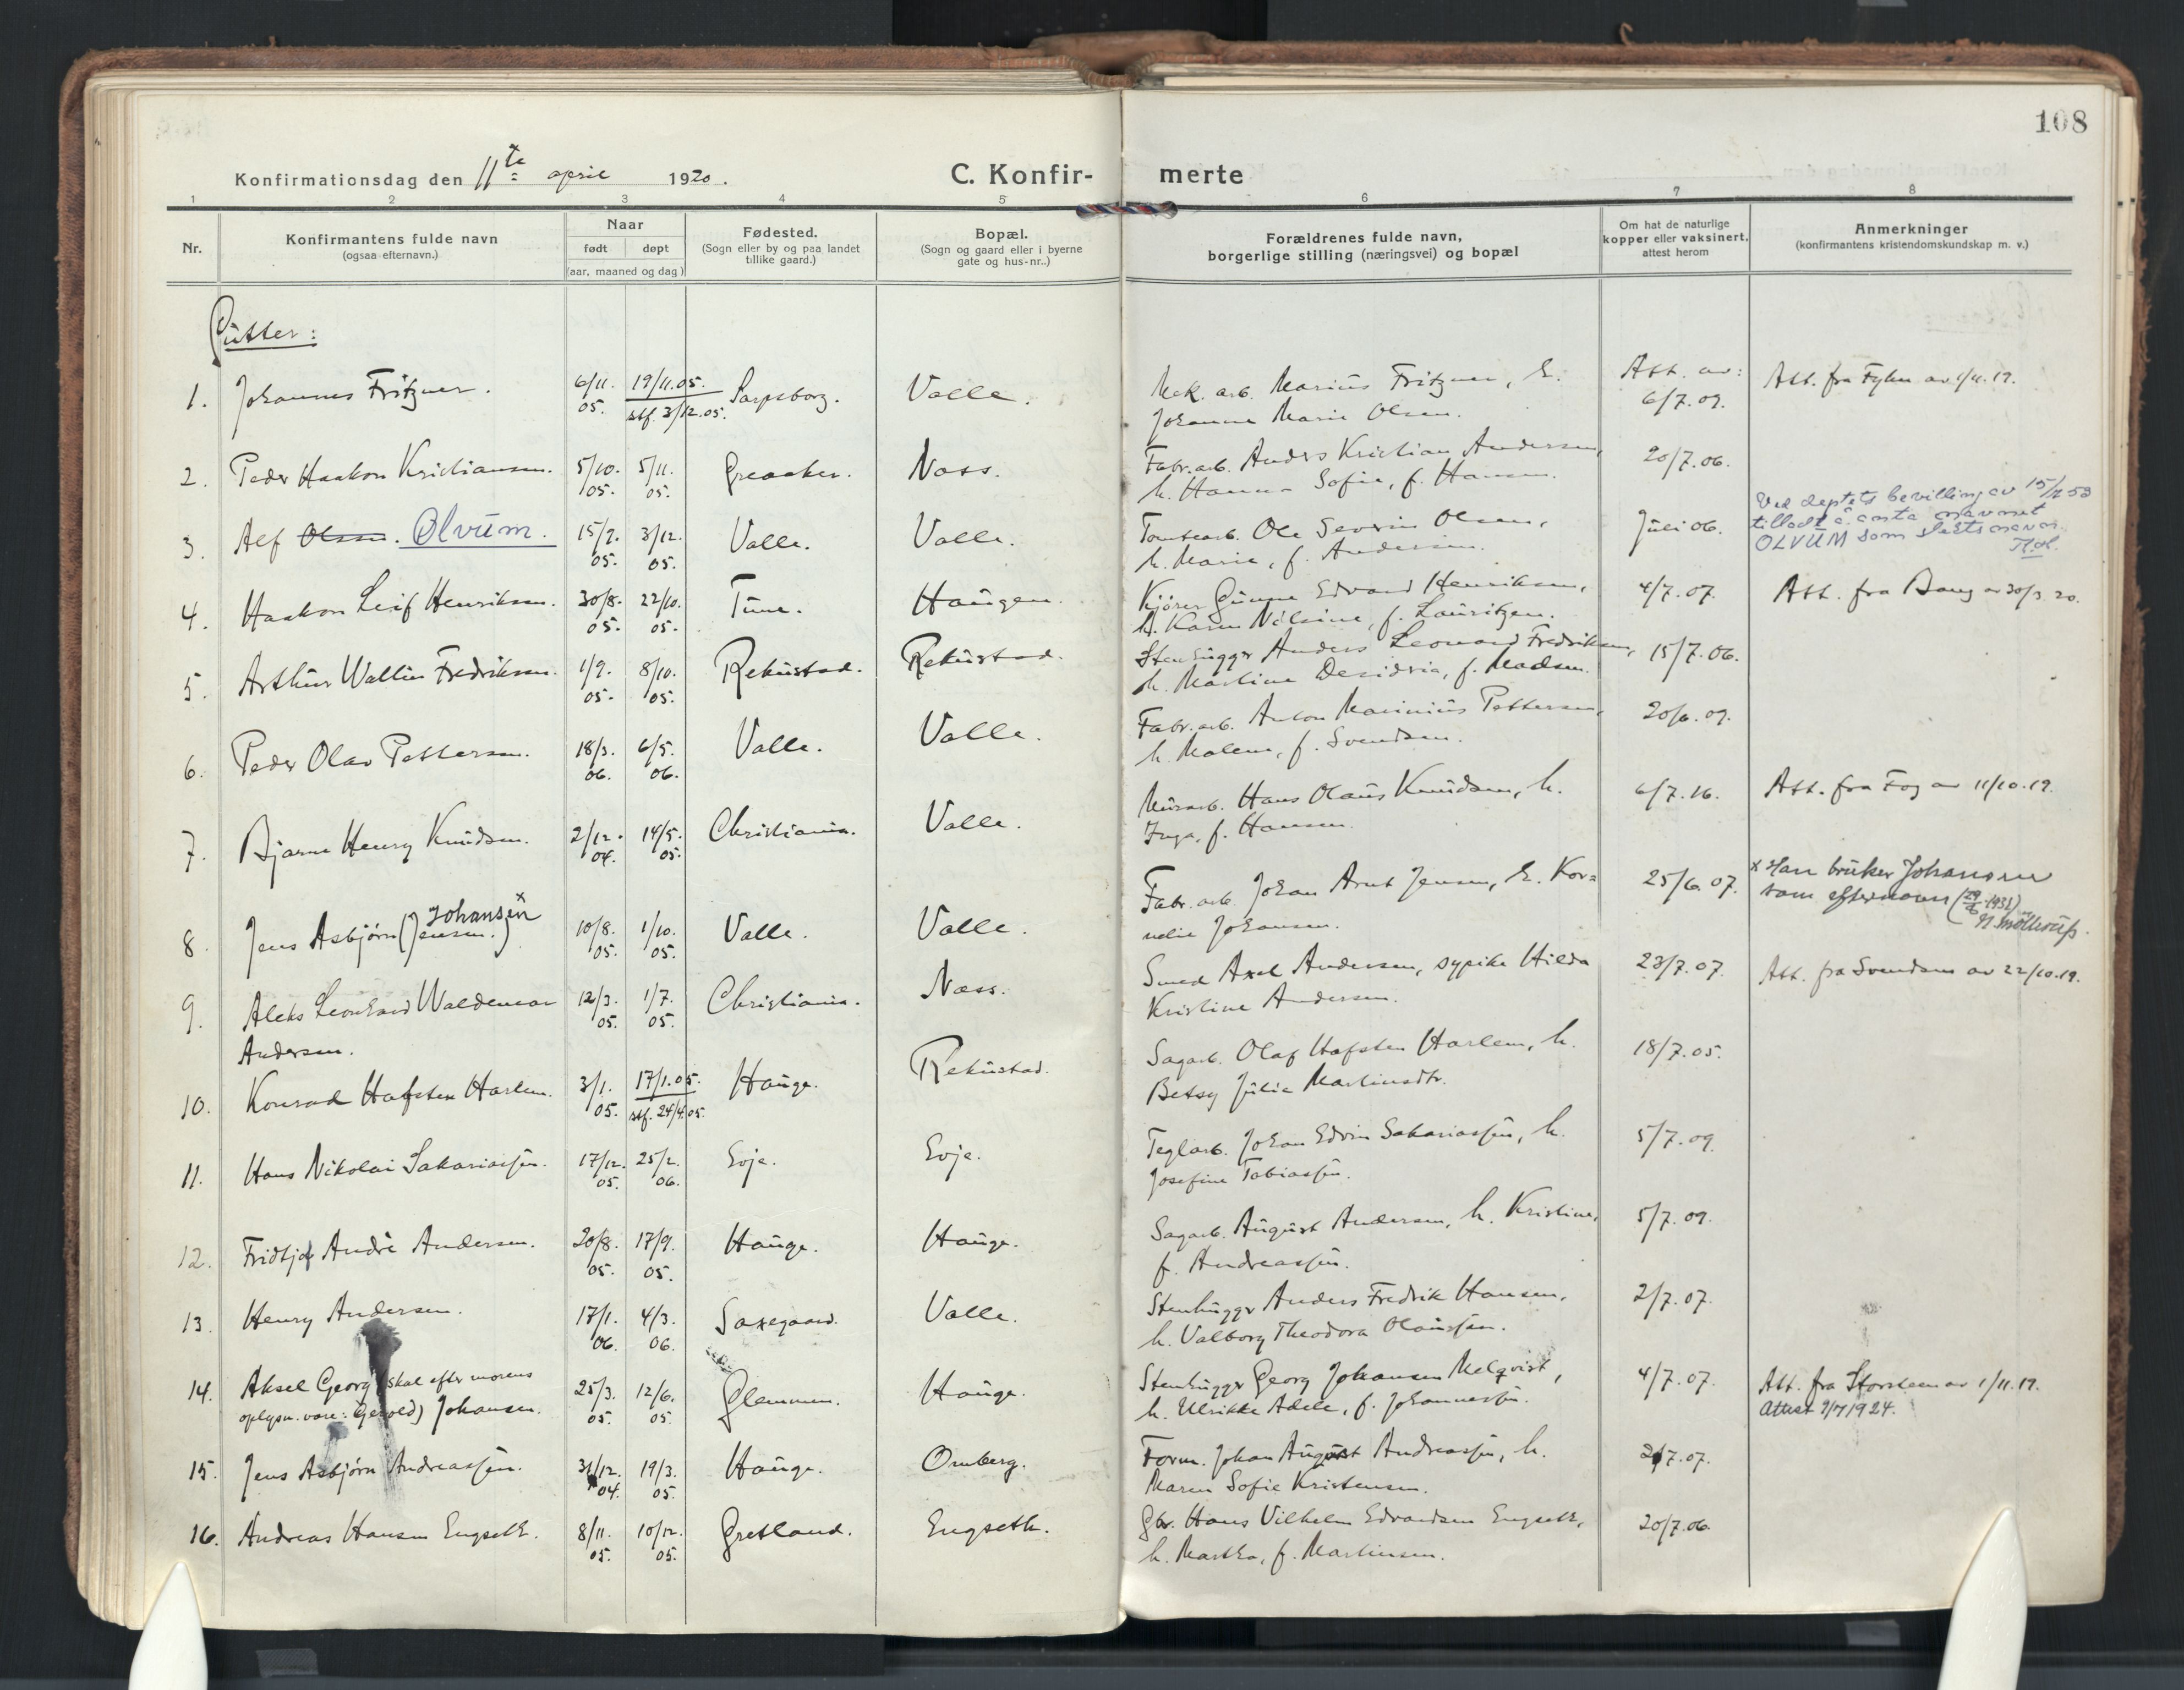 108
Konfirmationsdag den 11te april 1920.
C. Konfir- merte
1 2 3 4 5 6 7 8
Nr.
Konfirmantens fulde navn
(ogsaa efternavn.)
Naar
født døpt
(aar, maaned og dag)
Fødested.
(Sogn eller by og paa landet
tillike gaard.)
Bopæl.
(Sogn og gaard eller i byerne
gate og hus-nr.)
Forældrenes fulde navn,
borgerlige stilling (næringsvei) og bopæl
Om hat de naturlige
kopper eller vaksinert,
attest herom
Anmerkninger
(konfirmantens kristendomskundskap m. v.)
Gutter:
1. Johannes Fritzner. 6/11. 19/11.05. Sarpsborg. Valle. Mek. arb. Marius Fritzner, h. Att. av: Att. fra av 1/11.19.
05. stf. 3/12.05. Johanne Marie Olsen. 6/7.09.
2. Peder Haakon Kristiansen. 5/10. 5/11. Greaaker. Næss. Fabr. arb. Anders Kristian Andersen, 20/7.06.
05. 05. h. Hanna Sofie, f. Hansen.
3. Alf Olsen. Olvum. 15/9. 3/12. Valle. Valle. Tomtearb. Ole Severin Olsen, Juli 06. Ved deptets bevilling av 15/12 53
05. 05. h. Marie, f. Andersen. tilladt å anta navnet
OLVUM som slektsnavn.
4. Haakon Leif Henriksen. 30/8. 22/10. Tune. Haugen. Kjører Gunne Edvard Henriksen, 4/7.07. Att. fra Bang av 30/3 20.
05. 05. h. Karen Nilsine, f. Lauritzen.
5. Arthur Wallin Fredriksen. 1/9. 8/10. Rekustad. Rekustad. Stenhugger Anders Leonard Fredriksen, 15/7.06.
05. 05. h. Martine Desideria, f. Madsen.
6. Peder Olav Pettersen. 18/3. 6/5. Valle. Valle. Fabr. arb. Anton Marinius Pettersen, 20/6.09.
06. 06. h. Malene, f. Svendsen.
7. Bjarne Henry Knudsen. 2/12. 14/5. Christiania. Valle. Murarb. Hans Olaus Knudsen, h. 6/7.16. Att. fra Fog av 11/10.19.
04. 05. Inga, f. Hansen.
8. Jens Asbjørn (Jensen.) Johansen x 10/8. 1/10. Valle. Valle. Fabr. arb. Johan Arnt Jensen, h. Kor= 25/6.07. x Han bruker Johansen
05. 05. nelie Johansen. som efternavn (29/6 1932)
N. Møllerup.
9. Aleks Leonhard Waldemar 12/3. 1/7. Christiania. Næss. Smed Axel Andersen, sypike Hilda 23/7.07. Att. fra Svendsen av 22/10.19.
Andersen. 05. 05. Kristine Andersen.
10. Konrad Hafsten Harlem. 3/1. 17/1.05. Hauge. Rekustad. Sagarb. Olaf Hafsten Harlem, h. 18/7.05.
05. stf. 24/4.05. Betsy Julie Martinsdtr.
11. Hans Nikolai Sakariassen. 17/12. 25/2. Evje. Evje. Teglarb. Johan Edvin Sakariassen, h. 5/7.09.
05. 06. Josefine Tobiassen.
12. Fridtjof André Andersen. 20/8. 17/9. Hauge. Hauge. Sagarb. August Andersen, h. Kristine, 5/7.09.
05. 05. f. Andreassen.
13. Henry Andersen. 17/1. 4/3. Saxegaard. Valle. Stenhugger Anders Fredrik Hansen, 2/7.07.
06. 06. h. Valborg Theodora Olaussen.
14. Aksel Georg (skal efter morens 25/3. 12/6. Glemmen. Hauge. Stenhugger Georg Johansen Melqvist, 4/7.07. Att. fra Storsteen av 1/11.19.
oplysn. være: Gerold) Johansen. 05. 05. h. Ulrikke Adele, f. Johannessen. Attest 9/7 1924.
15. Jens Asbjørn Andreassen. 31/12. 19/3. Hauge. Omberg. Form. Johan August Andreassen, h. 2/7.07.
04. 05. Maren Sofie Kristensen.
16. Andreas Hansen Engseth. 8/11. 10/12. Gretland. Engseth. Gbr. Hans Vilhelm Edvardsen Engseth, 20/7.06.
05. 05. h. Martha, f. Martinsen.